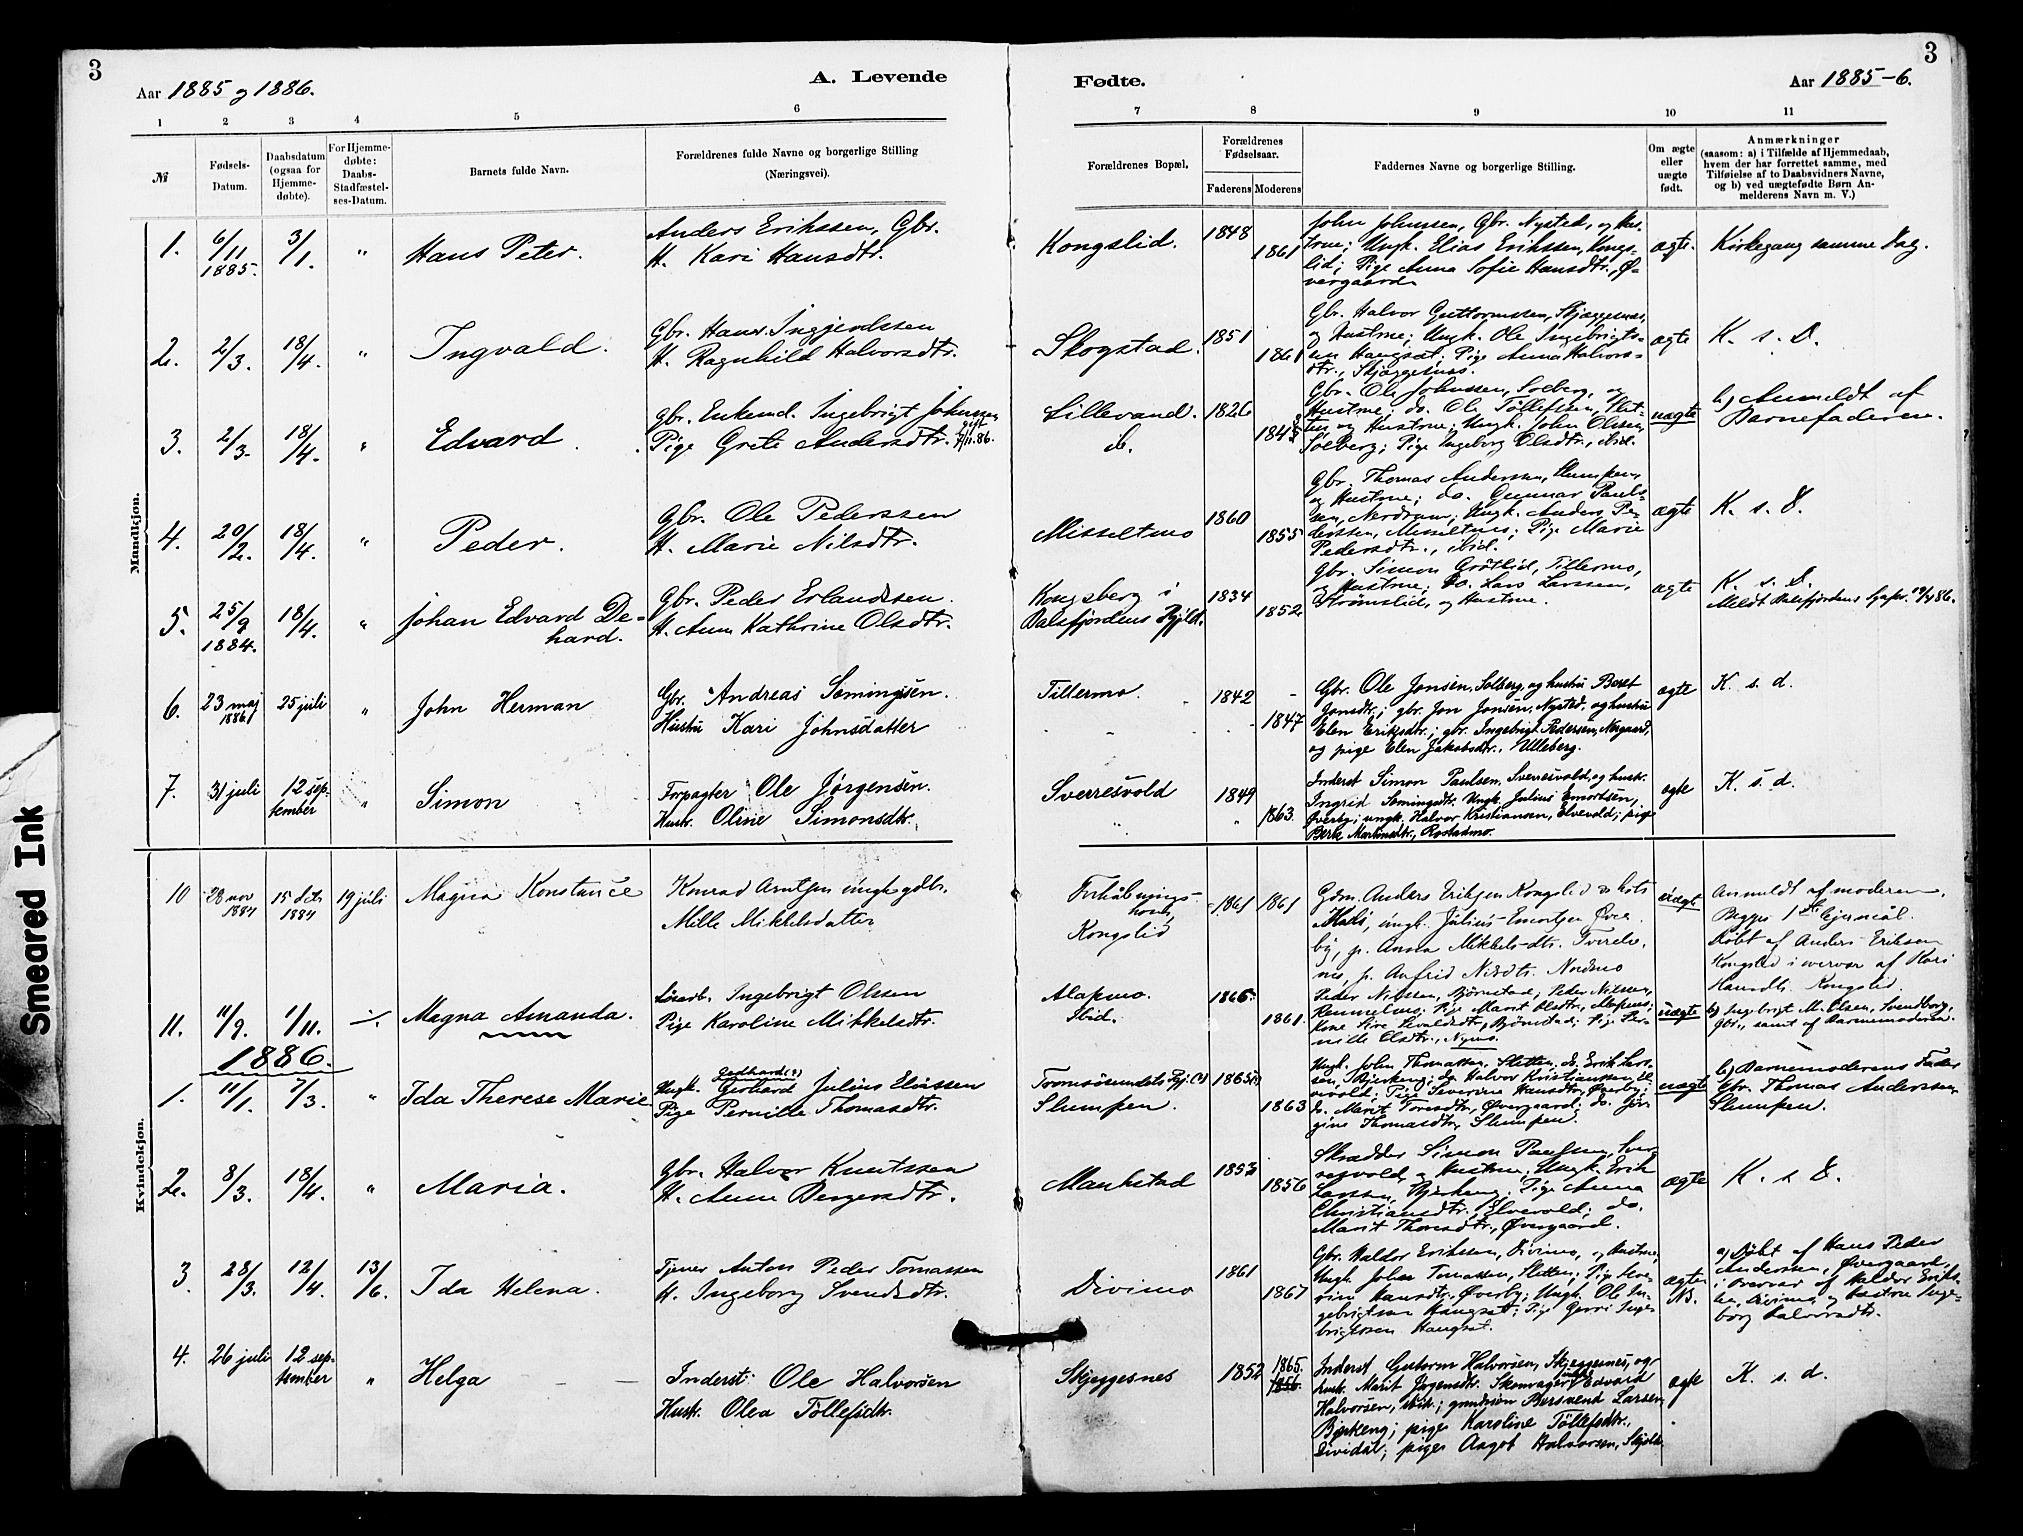 3
Aar 1885 og 1886.
A. Levende
1 2 3 4 5 6
№
Fødsels-
Datum.
Daabsdatum
(ogsaa for
Hjemme-
døbte).
For Hjemme-
døbte:
Daabs-
Stadfæstel-
ses-Datum.
Barnets fulde Navn.
Forældrenes fulde Navne og borgerlige Stilling
(Næringsvei).
Fødte.
Aar 1885-6.
3
7 8 9 10 11
Forældrenes Bopæl.
Forældrenes
Fødselsaar.
Faderens Moderens
Faddernes Navne og borgerlige Stilling.
Om ægte
eller
uægte
født.
Anmærkninger
(saasom: a) i Tilfælde af Hjemmedaab,
hvem der har forrettet samme, med
Tilføielse af to Daabsvidners Navne,
og b) ved uægtefødte Børn An-
melderens Navn m. V.)
Mandkjøn.
1. 6/11 1885. 3/1. " Hans Peter.
Anders Erikssen, Gbr.
H. Kari Hansdtr.
Kongslid. 1848 1861
John Johnsen, Gbr. Nysted, og Hus-
true; Ungk. Elias Erikssen, Kongs-
lid; Pige Anna Sofie Hansdtr., Ø-
vergaard.
ægte. Kirkegang samme Dag.
2. 2/3. 18/4. " Ingvald.
Gbr. Hans Ingjendssen
H. Ragnhild Halvorsdtr.
Skogstad. 1851 1861
Gbr. Halvor Guttormssen, Skjæggesnes,
og Hustrue; Ungk. Ole Ingebrigts-
sen Haugsæt; Pige Anna Halvors-
dtr., Skjæggesnes.
ægte K. s. D.
3. 2/3. 18/4. " Edvard.
Gbr. Enkemd. Ingebrigt Johnssen
Pige Grete Andersdtr. gift 7/11.86.
Lillevand. 1826
do. 1845
Gbr. Ole Johnssen, Solberg, og
Hustrue; do. Ole Tollefsen, Slet-
ten og Hustrue; Ungk. John Olssen,
Solberg; Pige Ingeborg Olsdtr., ibid.
uægte b) Anmeldt af
Barnefaderen.
4. 20/2. 18/4. " Peder.
Gbr. Ole Pederssen
H. Marie Nilsdtr.
Misseltmo 1860 1855
Gbr. Thomas Anderssen, Slumpen,
og Hustrue; do. Gunnar Pauls-
sen, Nordrum; Ungk. Anders Pe-
derssen, Misseltmo; Pige Marie
Pedersdtr., ibid.
ægte K. s. D.
5. 25/9 1884. 18/4. " Johan Edvard De-
hard.
Gbr. Peder Erlandssen.
H. Anne Kathrine Olsdtr.
Kongsberg i
Balsfjordens Pgjld. 1834 1852
Gbr. Simon Grøtlid, Tillermo,
og Hustrue; Do. Lars Larssen,
Strømslid, og Hustrue.
ægte K. s. D.
Meldt Balsfjordens Sgpr. 19/4 86.
6. 23 maj 1886 25 juli " John Herman
Gbr. Andreas Somingsen.
Hustru Kari Johnsdatter
Tillermo. 1842 1847
Gbr. Ole Jonsen, Solberg, og hustru Beret
Jonsdtr.; gbr. Jon Jonsen, Nysted, og hustru
Elen Eriksdtr.; gbr. Ingebrigt Pedersen, Nergaard,
og pige Elen Jakobsdtr., Ulleberg.
ægte K. s. d.
7. 31 juli 12 sep-
tember " Simon
Forpagter Ole Jørgensen.
Hustr. Oline Simonsdtr.
Sverresvold 1849 1863.
Inderst Simon Paulsen, Sverresvold, og hustr.
Ingrid Somingsdtr. Ungk. Julius Emortsen,
Øverby; ungk. Halvor Kristiansen, Elvevold; pige
Berte Martinsdtr., Rostadmo.
ægte K. s. d.
Kvindekjøn.
10 28 nov 1884 15 dcbr 1884 19 juli Magna Konstance
Konrad Arntsen ungk. gdbr.
Mille Mikkelsdatter
Forhåbnings-
holm,
Kongslid 1861 1861
Gdm. Anders Eriksen Kongslid og hots
Kari, ungk. Julius Emortsen Øver-
by, p. Anna Mikkelsdtr. Tverelv-
nes, p. Anfrid Nilsdtr. Nordmo
uægte Anmeldt af moderen.
Begges 1ste lejermål.
Døbt af Anders Eriksen
Kongslid i overvær af Kari
Hansdtr. Kongslid.
11. 11/9. 1/11. -:- Magna Amanda.
Løsarb. Ingebrigt Olssen
Pige Karoline Mikkelsdtr.
Alapmo. 1865.
Ibid. 1861.
Peder Nilssen, Bjørnstad; Peder Nilssen,
Rennelmo; Pige Marit Olsdtr., Alapmo;
Kone Sire Sivaldsdtr., Bjørnstad; Pige Per-
nille Olsdtr., Nymo.
uægte b) Ingebrigt M. Olsen, Svendborg,
Gbr., samt af Barnemoderen.
1886.
1. 11/1. 7/3. " Ida Therese Marie
Gedhard(?)
Ungk. Gerhard Julius Eliassen
Pige Pernille Thomasdtr.
Tromsøsundets Pgj.(?) 1865(?)
Slumpen. 1863
Ungk. John Thomassen, Sletten; do. Erik Lars-
sen, Bjerkeng; do. Halvor Kristianssen, El-
vevold; Pige Severine Hansdtr., Øverby;
do. Marit Toresdtr., Øvergaard; do. Jør-
gine Thomasdtr., Slumpen.
uægte b) Barnemoderens Fader
Gbr. Thomas Anderssen
Slumpen.
2. 8/3. 18/4. " Maria.
Gbr. Halvor Knutssen
H. Anne Bergersdtr.
Maukstad 1853 1856
Skrædder Simon Paulsen, Sver-
resvold, og Hustrue; Ungk. Erik
Larssen, Bjerkeng; Pige Anna
Christiansdtr., Elvevold; do.
Marit Thoresdtr., Øvergaard.
ægte K. s. D.
3. 28/3. 12/4. 13/6. Ida Helena.
Tjener Anton Peder Tomassen
H. Ingeborg Svendsdtr.
Divimo 1861 1867
Gbr. Haldor Erikssen, Divimo, og Hustrue;
Ungk. Johan Tomassen, Sletten; Pige Seve-
rine Hansdtr., Øverby; Ungk. Ole In-
gebrigtsen Haugsæt; Pige Gurri Inge-
brigtssen Haugsæt.
ægte
NB.
a) Døbt af Hans Peder
Andersen, Øvergaard,
i Overvær af Haldor Eriks-
sen, Divimo, og Hustrue Inge-
borg Halvorsdtr.
4. 26 juli 12 sep-
tember " Helga
Inderst Ole Halvorsen
Hustr. Olea Tollefsdtr.
Skjeggesnes 1852 1865.
1856.
Inderst Guttorm Halvorsen, Skjeggesnes, og
hustr. Marit Jørgensdtr. Skonvager Edvard
Halvorsen, ibid.; grundsøn Bersvend Larsen,
Bjerkeng; pige Karoline Tollefsdtr.,
Dividal; pige Aagot Halvorsen, Skjold.
ægte K. s. d.
Smeared Ink